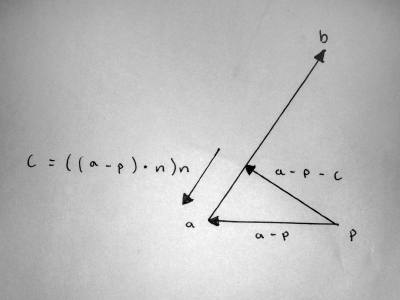 b
C = ((a - p) • n)n
a - p - c
a
a - p
p